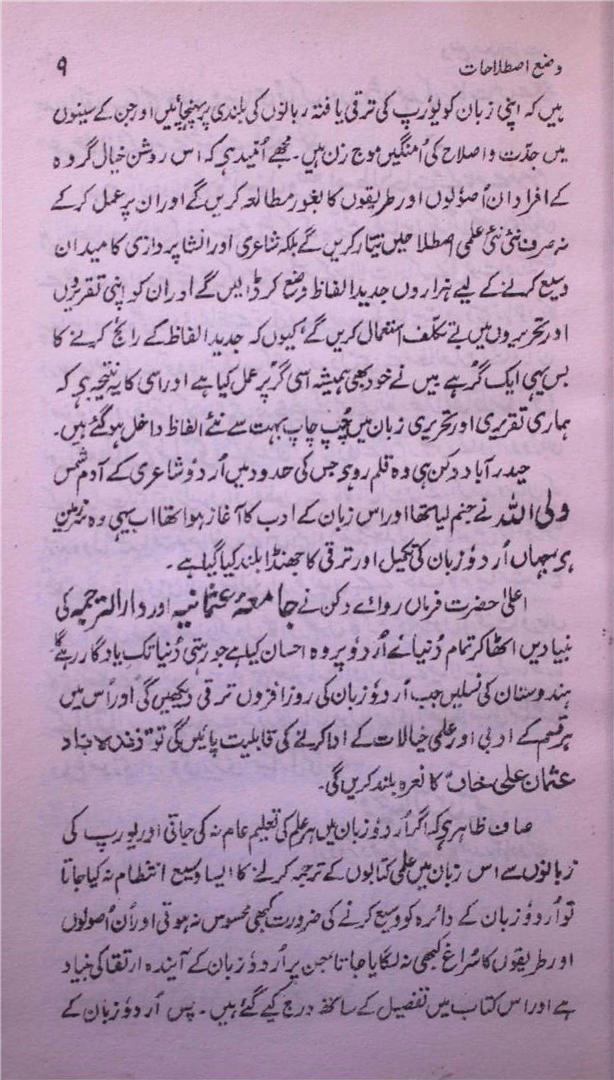 وضع اصطلاحات ۹
ہیں کہ اپنی زبان کو یورپ کی ترقی یافتہ زبانوں کی بلندی پر پہنچائیں اور جن کے سینوں
میں جدّت و اصلاح کی اُمنگیں موج زن ہیں۔ مجھے اُمّید ہی کہ اس روشن خیال گروہ
کے افراد ان اُصولوں اور طریقوں کا بغور مطالعہ کریں گے اور ان پر عمل کرکے
نہ صرف نئی نئی علمی اصطلاحیں تیّار کریں گے بلکہ شاعری اور انشا پردازی کا میدان
وسیع کرنے کے لیے ہزاروں جدید الفاظ وضع کر ڈالیں گے اور ان کو اپنی تقریروں
اور تحریروں میں بے تکلّف استعمال کریں گے، کیوں کہ جدید الفاظ کے رائج کرنے کا
بس یہی ایک گُر ہے میں نے خود بھی ہمیشہ اسی گُر پر عمل کیا ہے اور اسی کا یہ نتیجہ ہی کہ
ہماری تقریری اور تحریری زبان میں چُپ چاپ بہت سے نئے الفاظ داخل ہوگئے ہیں۔
حیدرآباد دکن ہی وہ قلم رو ہی جس کی حدود میں اُردو شاعری کے آدم شمس
ولی اللہ نے جنم لیا تھا اور اس زبان کے ادب کا آغاز ہوا تھا اب یہی وہ سرزمین
ہی جہاں اُردو زبان کی تکمیل اور ترقی کا جھنڈا بلند کیا گیا ہے۔
اعلیٰ حضرت فرماں رواے دکن نے جامعۂ عثمانیہ اور دارالترجمہ کی
بنیادیں اٹھا کر تمام دُنیاے اُردو پر وہ احسان کیا ہے جو رہتی دُنیا تک یادگار رہے گا
ہندوستان کی نسلیں جب اُردو زبان کی روز افزوں ترقی دیکھیں گی اور اُس میں
ہر قسم کے ادبی اور علمی خیالات کے ادا کرنے کی قابلیت پائیں گی تو ”زندہ باد
عثمان علی خاں“ کا نعرہ بلند کریں گی۔
صاف ظاہر ہی کہ اگر اُردو زبان میں ہر علم کی تعلیم عام نہ کی جاتی اور یورپ کی
زبانوں سے اس زبان میں علمی کتابوں کے ترجمہ کرنے کا ایسا وسیع انتظام نہ کیا جاتا
تو اُردو زبان کے دائرہ کو وسیع کرنے کی ضرورت کبھی محسوس نہ ہوتی اور اُن اُصولوں
اور طریقوں کا سُراغ کبھی نہ لگایا جاتا جن پر اُردو زبان کے آیندہ ارتقا کی بنیاد
ہے اور اس کتاب میں تفصیل کے ساتھ درج کیے گئے ہیں۔ پس اُردو زبان کے